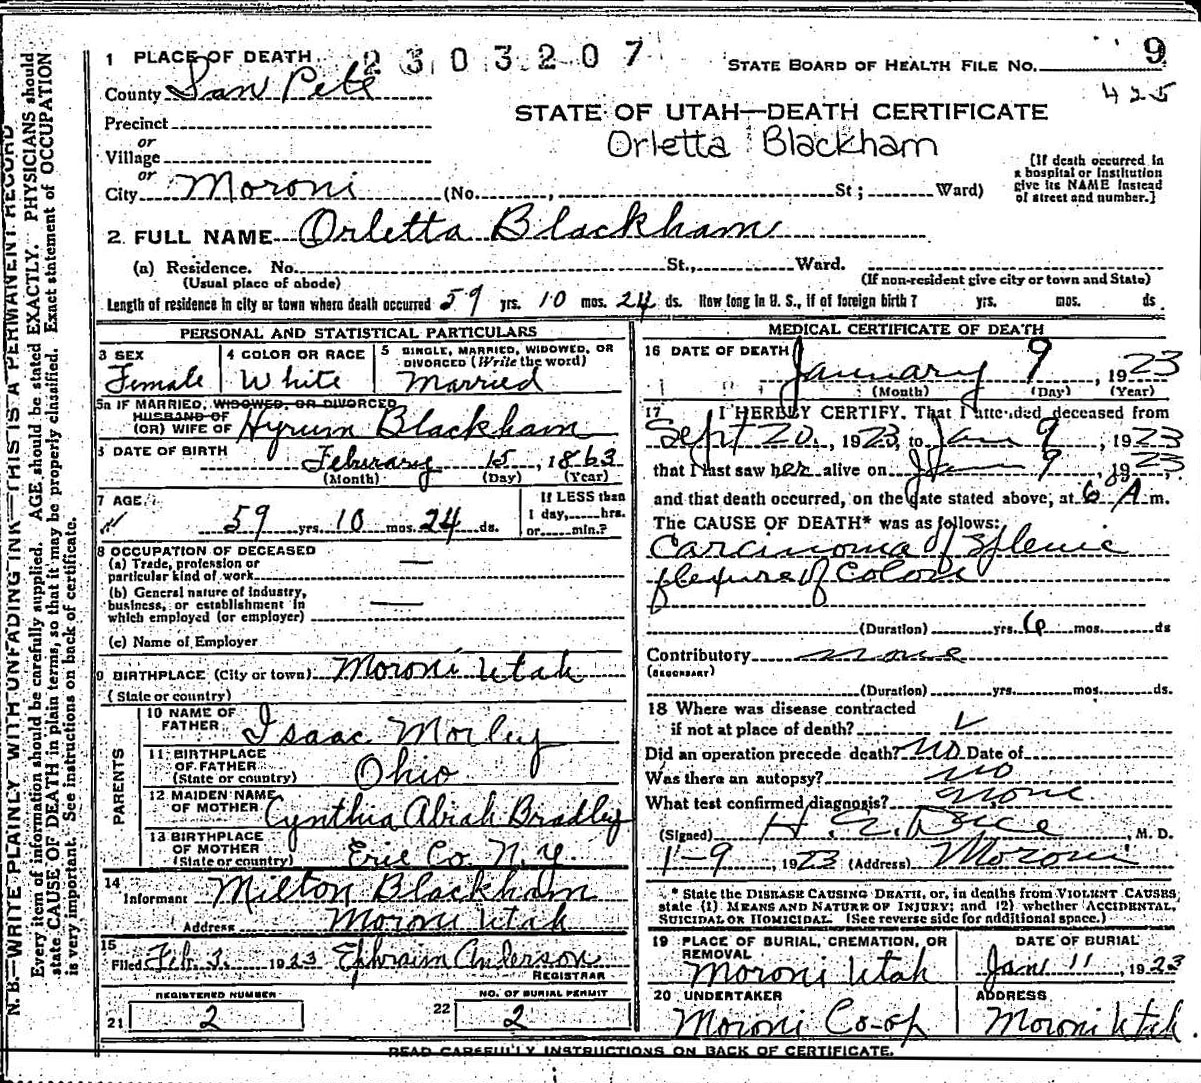 1 PLACE OF DEATH 2303207 STATE BOARD OF HEALTH FILE NO. 9
County San Pete 425
STATE OF UTAH—DEATH CERTIFICATE
Precinct
Orletta Blackham
or
Village
or
City Moroni (No. , St; Ward)
[If death occurred in
a hospital or institution
give its NAME instead
of street and number.]
2. FULL NAME Orletta Blackham
(a) Residence. No. St., Ward.
(Usual place of abode) (If non-resident give city or town and State)
Length of residence in city or town where death occurred 59 yrs. 10 mos. 24 ds. How long in U. S., if of foreign birth? yrs. mos. ds
PERSONAL AND STATISTICAL PARTICULARS
3 SEX
Female
4 COLOR OR RACE
White
5 SINGLE, MARRIED, WIDOWED, OR
DIVORCED (Write the word)
Married
5a IF MARRIED, WIDOWED, OR DIVORCED
HUSBAND OF
(OR) WIFE OF Hyrum Blackham
DATE OF BIRTH February 15, 1863
(Month) (Day) (Year)
7 AGE
59 yrs. 10 mos. 24 ds.
If LESS than
1 day, hrs.
or min.?
8 OCCUPATION OF DECEASED
(a) Trade, profession or
particular kind of work —
(b) General nature of industry,
business, or establishment in
which employed (or employer) —
(c) Name of Employer
9 BIRTHPLACE (City or town) Moroni Utah
(State or country)
PARENTS
10 NAME OF
FATHER Isaac Morley
11 BIRTHPLACE
OF FATHER
(State or country) Ohio
12 MAIDEN NAME
OF MOTHER Cynthia Abiah Bradley
13 BIRTHPLACE
OF MOTHER
(State or country) Erie Co. N.Y.
14
Informant Milton Blackham
Address Moroni Utah
15
Filed Feb. 3. 1923 Ephraim Anderson
REGISTRAR
REGISTERED NUMBER
21 2
NO. OF BURIAL PERMIT
22 2
MEDICAL CERTIFICATE OF DEATH
16 DATE OF DEATH
January 9, 1923
(Month) (Day) (Year)
17 I HEREBY CERTIFY, That I attended deceased from
Sept 20., 1923, to Jan 9, 1923
that I last saw her alive on Jan 9, 1923.
and that death occurred, on the date stated above, at 6 A m.
The CAUSE OF DEATH* was as follows:
Carcinoma of Splenic
flexure of Colon
(Duration) yrs. 6 mos. ds
Contributory none
(SECONDARY)
(Duration) yrs. mos. ds.
18 Where was disease contracted
if not at place of death?
Did an operation precede death? no Date of
Was there an autopsy? no
What test confirmed diagnosis? none
(Signed) , M. D.
1-9 1923 (Address) Moroni
* State the DISEASE CAUSING DEATH, or, in deaths from VIOLENT CAUSES
state (1) MEANS AND NATURE OF INJURY; and (2) whether ACCIDENTAL,
SUICIDAL OR HOMICIDAL. (See reverse side for additional space.)
19 PLACE OF BURIAL, CREMATION, OR
REMOVAL
Moroni Utah
DATE OF BURIAL
Jan 11, 1923
20 UNDERTAKER
Moroni Co-op
ADDRESS
Moroni Utah.
READ CAREFULLY INSTRUCTIONS ON BACK OF CERTIFICATE.
N. B.—WRITE PLAINLY WITH UNFADING INK—THIS IS A PERMANENT RECORD
Every item of information should be carefully supplied. AGE should be stated EXACTLY. PHYSICIANS should
state CAUSE OF DEATH in plain terms, so that it may be properly classified. Exact statement of OCCUPATION
is very important. See instructions on back of certificate.